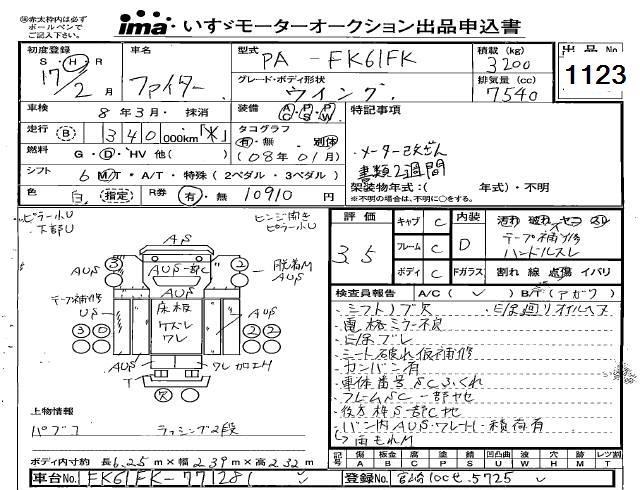 ※赤太枠内は必ず
ボールペンで
ご記入下さい。
ima いすゞモーターオークション出品申込書
初度登録
S・H・R
17/2月
車名
ファイター
型式
PA-FK61FK
グレード・ボディ形状
ウイング
積載(kg)
3200
排気量(cc)
7540
出品No
1123
車検 8年3月・抹消
装備 AC PS PW
特記事項
走行 B 340000km「米」
タコグラフ
有・無・別体
(08年01月)
・メーター改ざん
書類2週間
燃料 G・D・HV 他( )
シフト 6 M/T・A/T・特殊(2ペダル・3ペダル)
架装物年式:( 年式)・不明
※不明の場合は、不明に○をする。
色 白 指定 R券 有・無 10910円
ピラー小U
下部U
ヒンジ曲き
ピラー小U
評価 3.5
キャブ C
フレーム C
ボディ C
内装 D
汚れ 破れ ヤコ スレ
テープ補修
ハンドルスレ
Fガラス 割れ 線 点傷 イバリ
AS
3
AUS
AUS一部C
2
AUS
脱着M
AUS
テープ補修
US
床板
ケズレ
ワレ
AUS
3 0
2 2
AUS
ワレ 加工H
T
欠
検査員報告 A/C( ✓ ) B/T(アガリ)
・シフトノブ欠
・E/床廻りオイルヘヌ
・電格ミラー不良
・E/床ブレ
・シート破れ仮補修
・カンバン有
・車体番号SCふくれ
・フレームSC一部ヤセ
・後方枠S一部Cヤセ
・バン内AUS・ワレ・ト・積荷有
→雨もれM
上物情報
パブコ ラッシング2段
記号 傷A 板金B 腐食C 塗装P 錆S 凹凸曲U 波W 穴H 跡M レツ割T
ボディ内寸約 長6.25m×幅2.39m×高2.32m
車台No. FK61FK-771281
登録No. 宮崎100せ5725